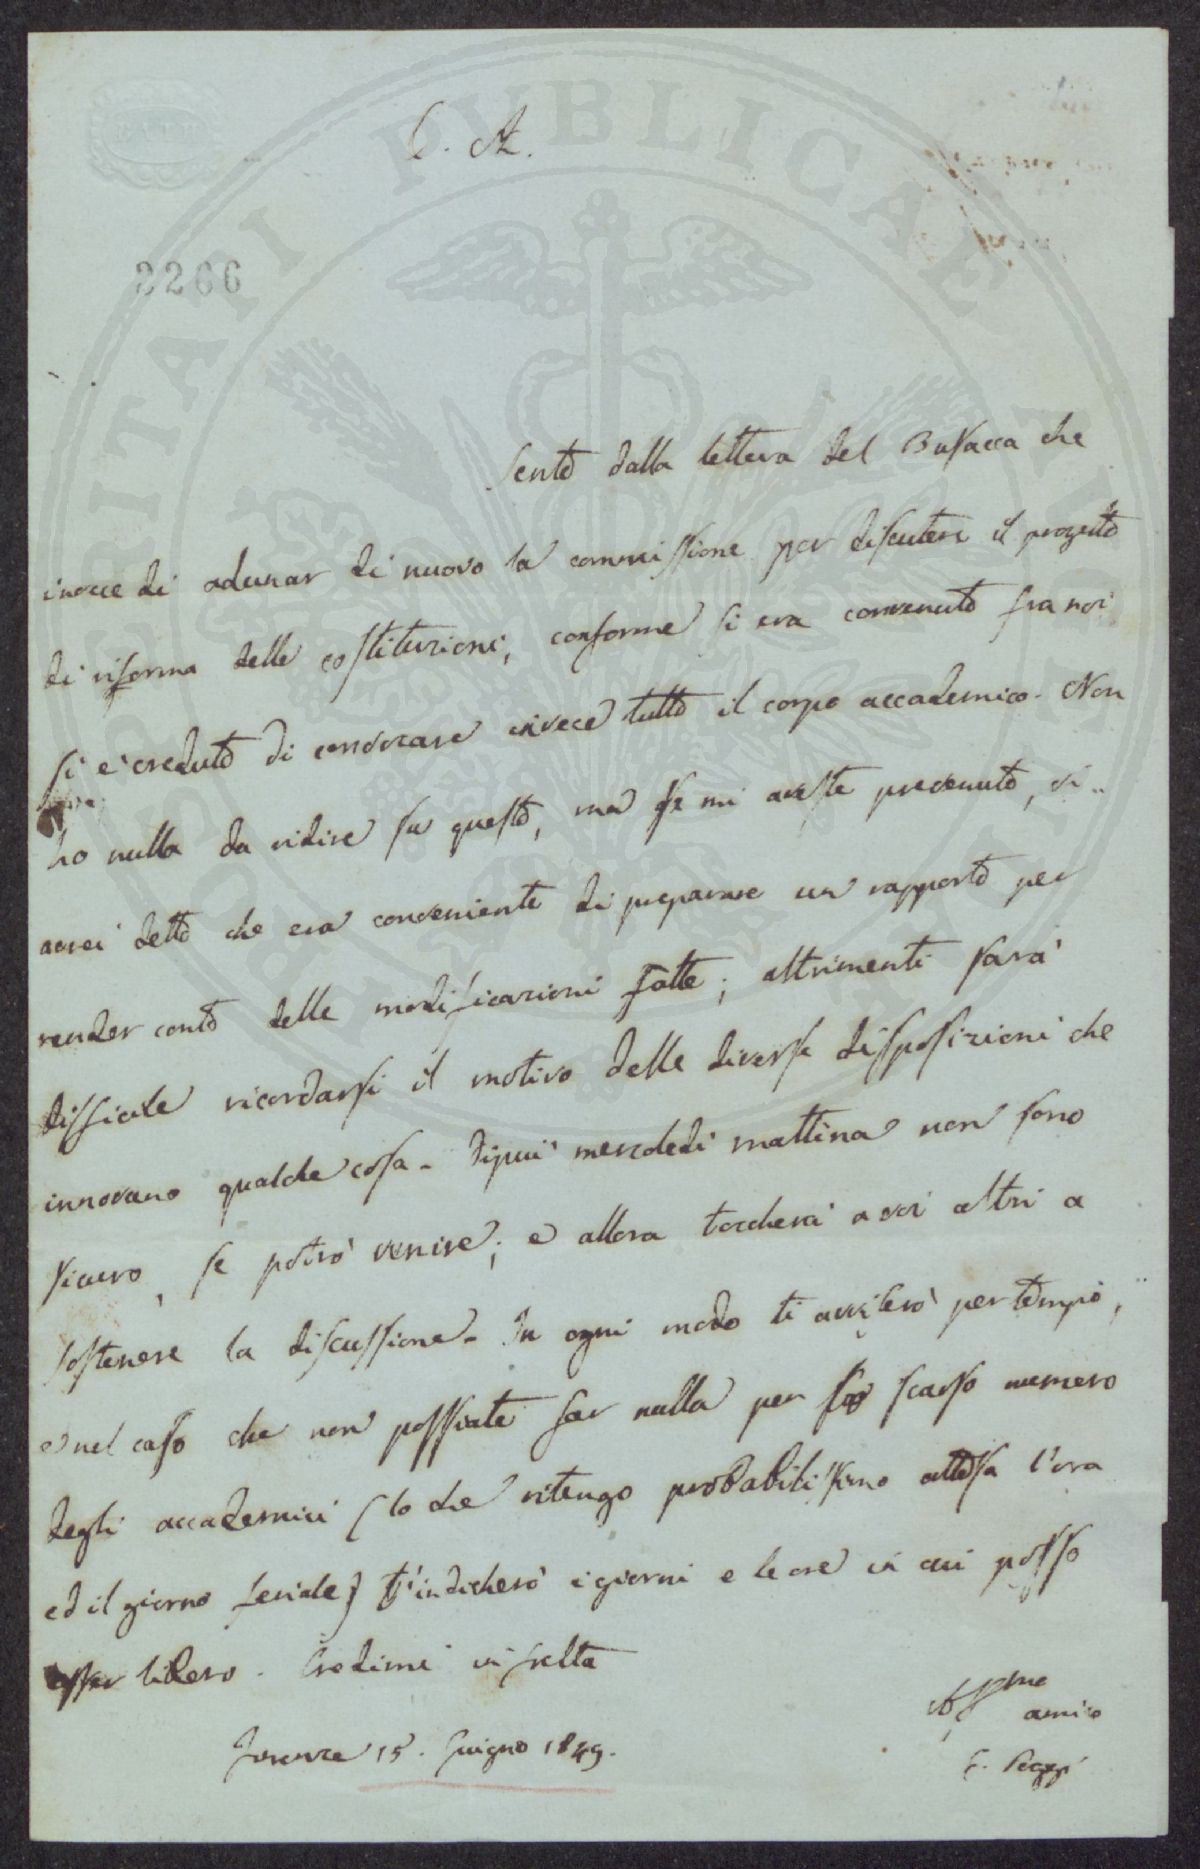 BATH
PROSPERITATI PUBLICAE AUGENDAE
C. A.
2266
Sento dalla lettera del Busacca che
invece di adunar di nuovo la commissione per discutere il progetto
di riforma delle costituzioni, conforme si era convenuto fra noi
si è creduto di convocare invece tutto il corpo accademico. Non
ho nulla da ridire su questo, ma se mi aveste prevenuto, vi
avrei detto che era conveniente di preparare un rapporto per
render conto delle modificazioni fatte; altrimenti sarà
difficile ricordarsi il motivo delle diverse disposizioni che
innovano qualche cosa. Di più mercoledì mattina non sono
sicuro, se potrò venire; e allora toccherà a voi altri a
sostenere la discussione. In ogni modo ti avviserò per tempo,
e nel caso che non possiate far nulla per lo scarso numero
degli accademici (lo che ritengo probabilissimo attesa l'ora
ed il giorno feriale) t'indicherò i giorni e le ore in cui posso
esser libero. Credimi in fretta
Affmo
amico
Firenze 15. Giugno 1849.